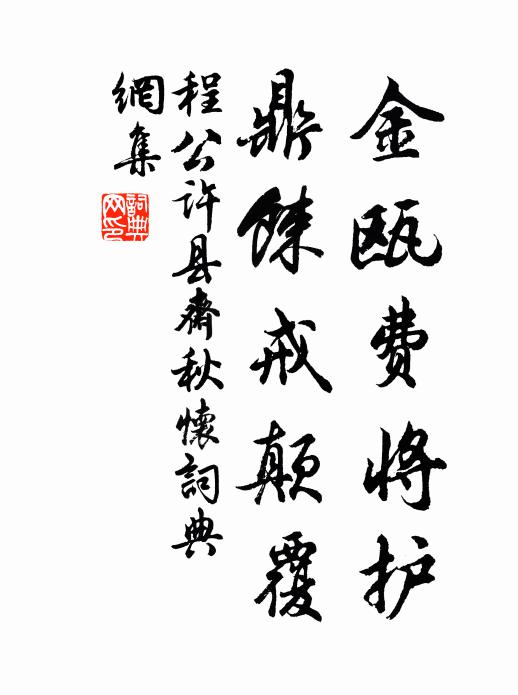 金瓯费将护
鼎餗戒颠覆
程公许县齋秋懷詞典
網集
詞典
网印